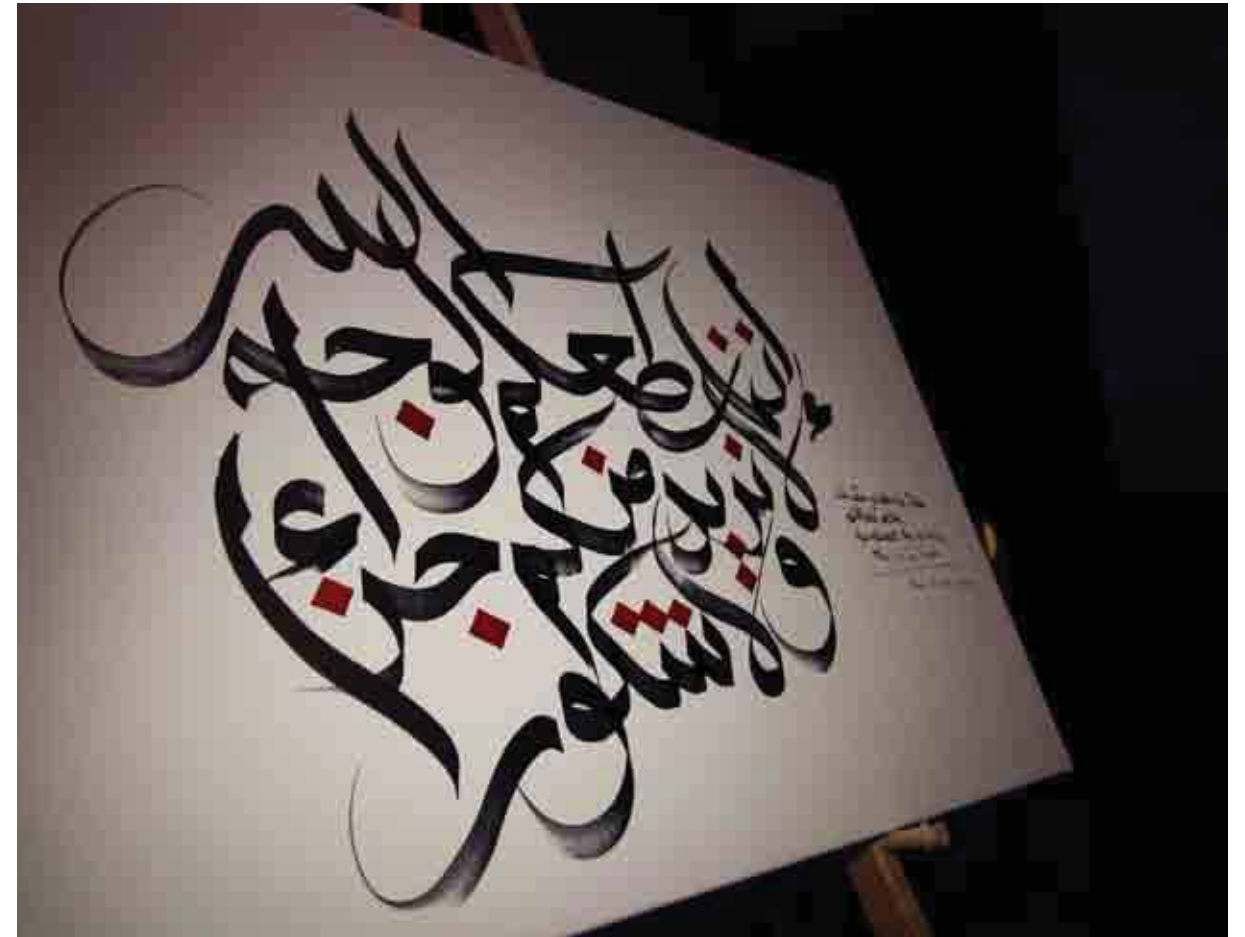 إنما نطعمكم لوجه الله
لا نريد منكم جزاء
ولا شكورا